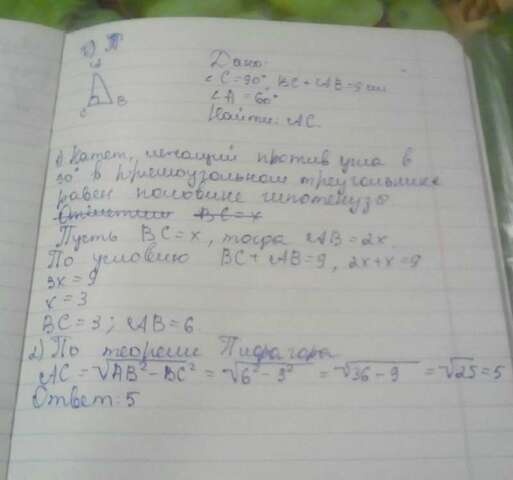 A
C B
Дано:
∠C=90°, BC+AB=9 см
∠A=60°
Найти: AC.
1) Катет, лежащий против угла в
30° в прямоугольном треугольнике
равен половине гипотенузы
Отметим BC=x
Пусть BC=x, тогда AB=2x.
По условию BC+AB=9, 2x+x=9
3x=9
x=3
BC=3; AB=6
2) По теореме Пифагора
AC=√AB²-BC² = √6²-3² = √36-9 = √25=5
Ответ: 5